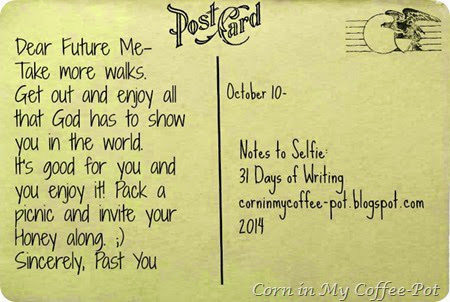 Post Card
Dear Future Me-
Take more walks.
Get out and enjoy all
that God has to show
you in the world.
It's good for you and
you enjoy it! Pack a
picnic and invite your
Honey along. ;)
Sincerely, Past You
October 10-
Notes to Selfie:
31 Days of Writing
corninmycoffee-pot.blogspot.com
2014
Corn in My Coffee-Pot